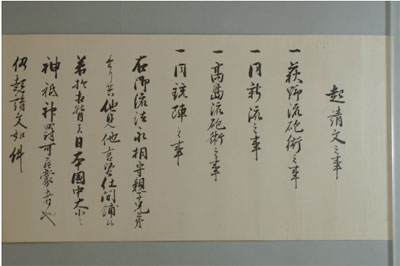 起請文之事
一荻野流砲術之事
一同新流之事
一高島流砲術之事
一同銃陣之事
右御流法永相守親子兄弟
たり共他見他言堅仕間鋪候
若於相背者日本國中大小之
神祇神罸可相蒙者也
仍起請文如件